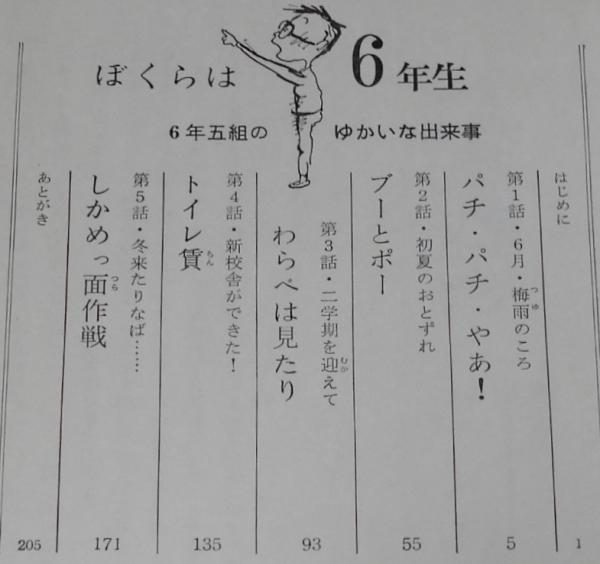 ぼくらは6年生
6年五組のゆかいな出来事
はじめに
1
第1話・6月・梅雨のころ
パチ・パチ・やあ!
5
第2話・初夏のおとずれ
ブーとポー
55
第3話・二学期を迎えて
わらべは見たり
93
第4話・新校舎ができた!
トイレ賃
135
第5話・冬来たりなば……
しかめっ面作戦
171
あとがき
205